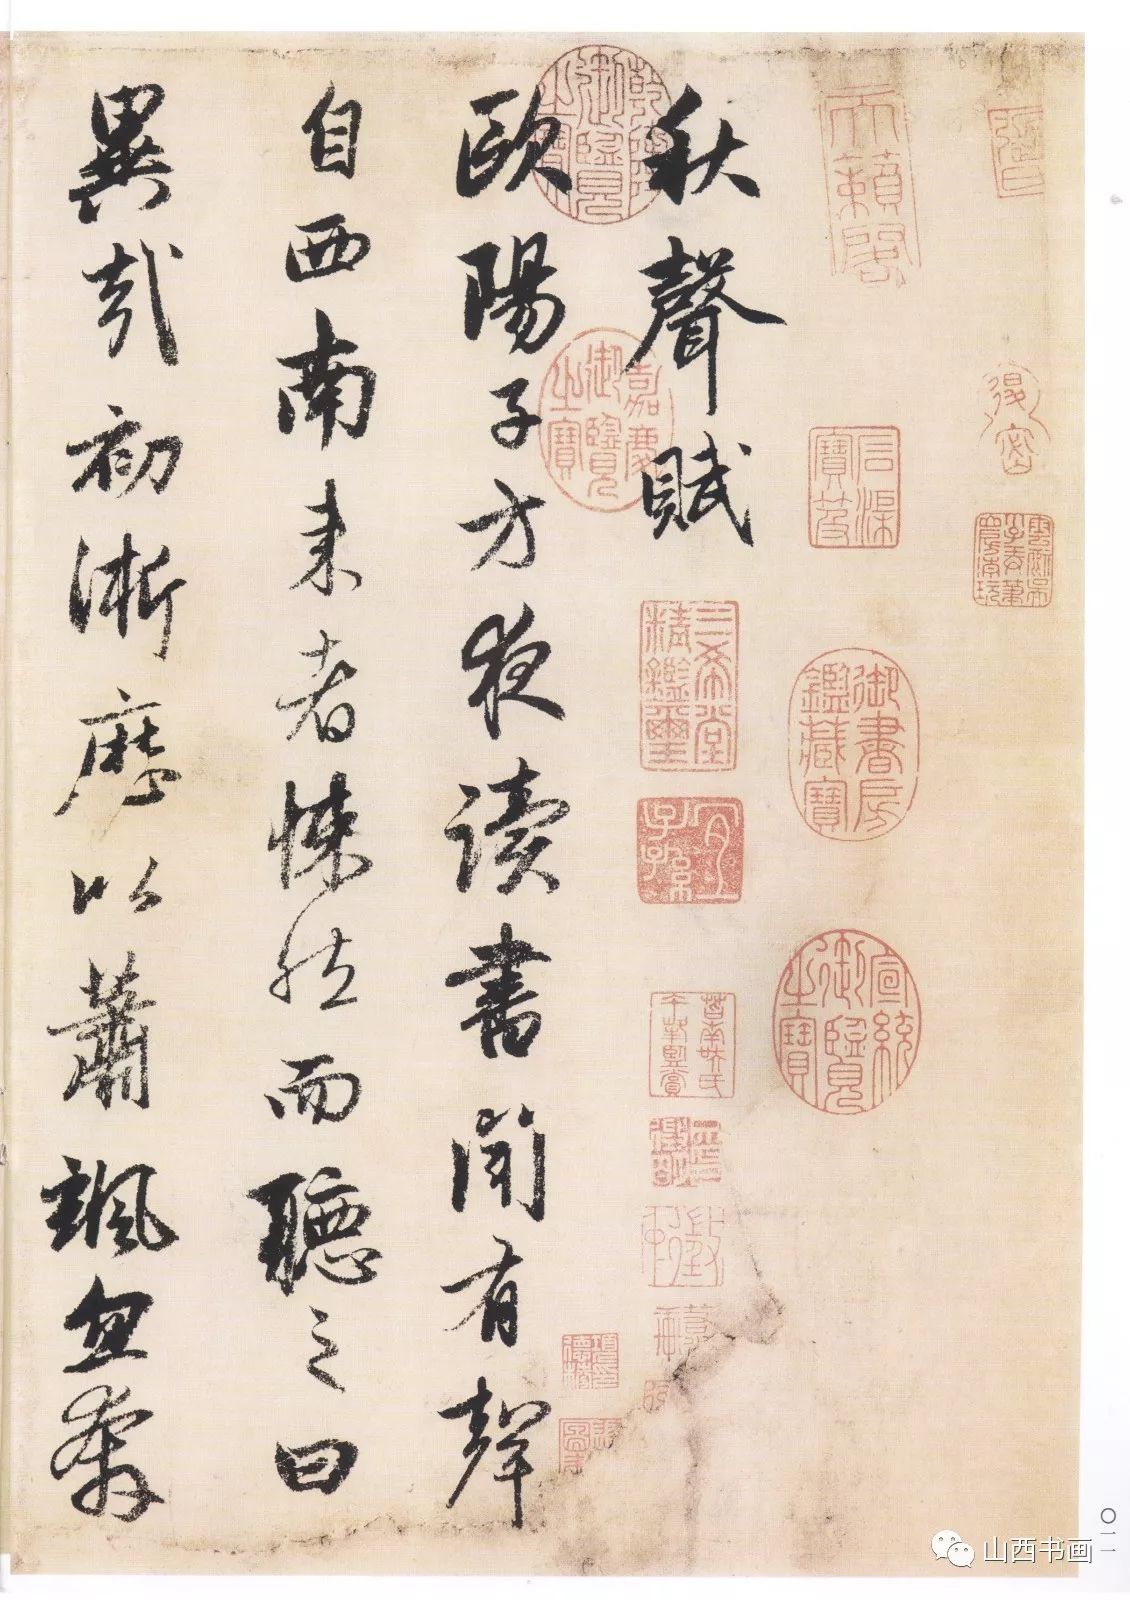 秋聲賦
歐陽子方夜讀書聞有聲
自西南来者悚然而聽之曰
異哉初淅瀝以蕭颯忽奔
乾隆御覽之寶
嘉慶御覽之寶
天籟閣
石渠寶笈
三希堂精鑑璽
宜子孫
御書房鑑藏寶
宣統御覽之寶
〇一一
山西书画